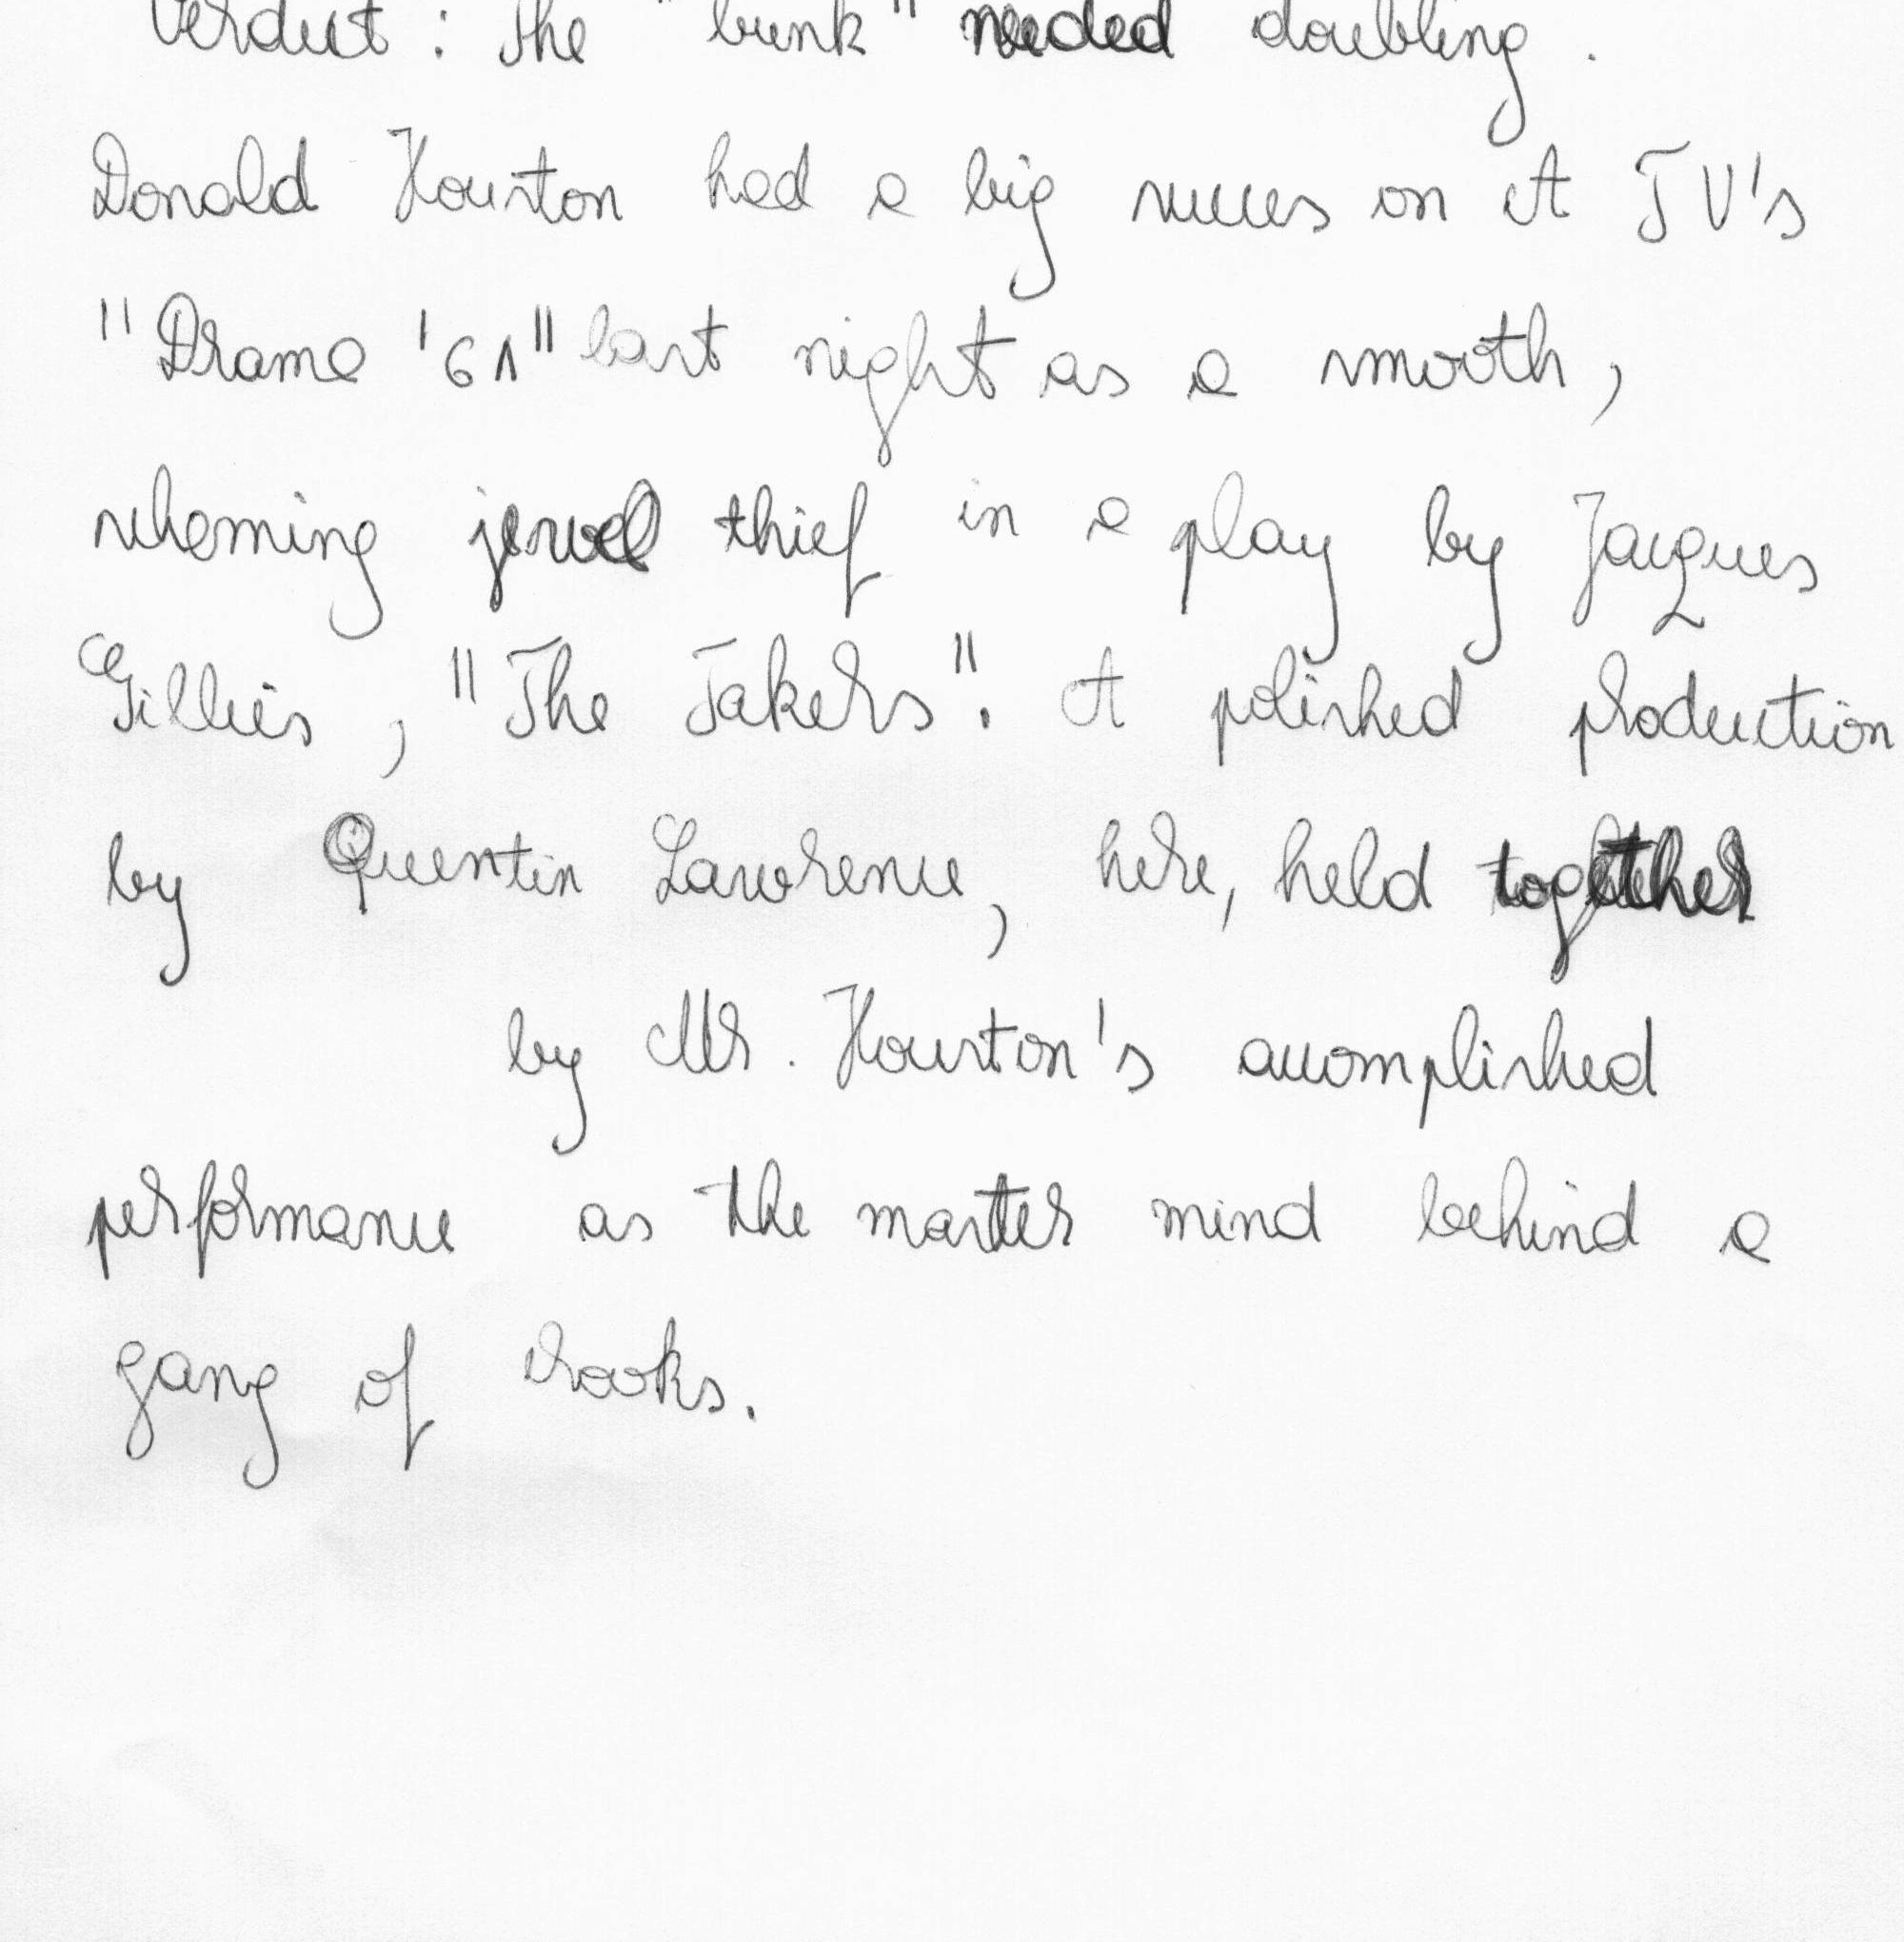 Verduct : The "bunk" needed doubling .
Donald Houston had a big succes on A TV's
"Drama '61" last night as a smooth,
scheming jewel thief in a play by Jacques
Gillies , "The Takers". A polished production
by Quentin Lawrence, here, held together
by Mr. Houston's accomplished
performance as the master mind behind a
gang of crooks.